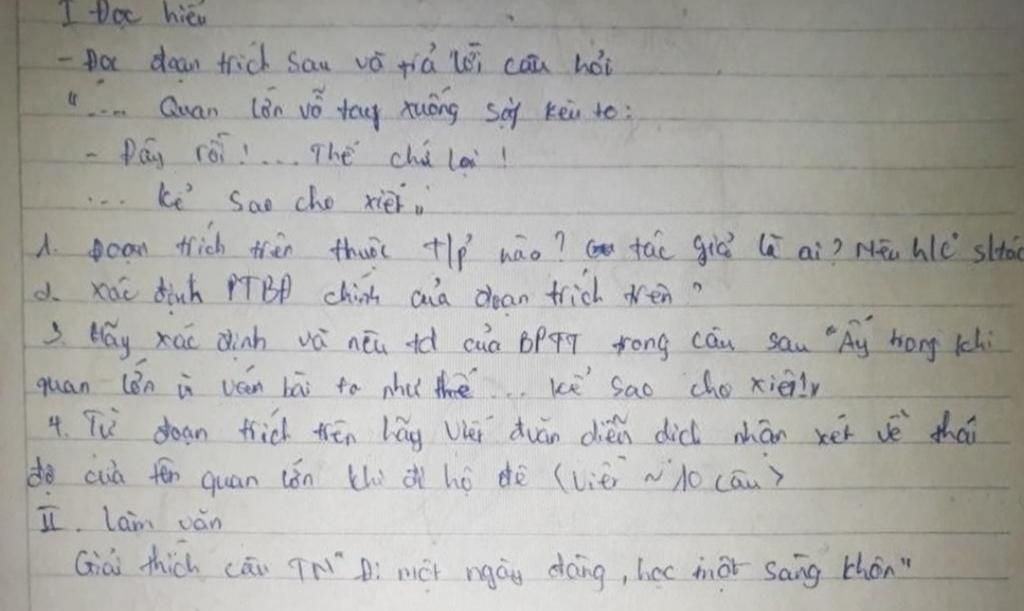 I Đọc hiểu
- Đọc đoạn trích sau và trả lời câu hỏi
"... Quan lớn vỗ tay xuống sập kêu to:
- Đây rồi!... Thế chứ lại!
... kể sao cho xiết"
1. Đoạn trích trên thuộc t/p nào? tác giả là ai? Nêu h/c s/tác
2. Xác định PTBĐ chính của đoạn trích trên?
3. Hãy xác định và nêu td của BPTT trong câu sau "Ấy trong khi
quan lớn ù ván bài to như thế... kể sao cho xiết!"
4. Từ đoạn trích trên hãy viết đvăn diễn dịch nhận xét về thái
độ của tên quan lớn khi đi hộ đê (Viết ~ 10 câu)
II. Làm văn
Giải thích câu TN "Đi một ngày đàng, học một sàng khôn"